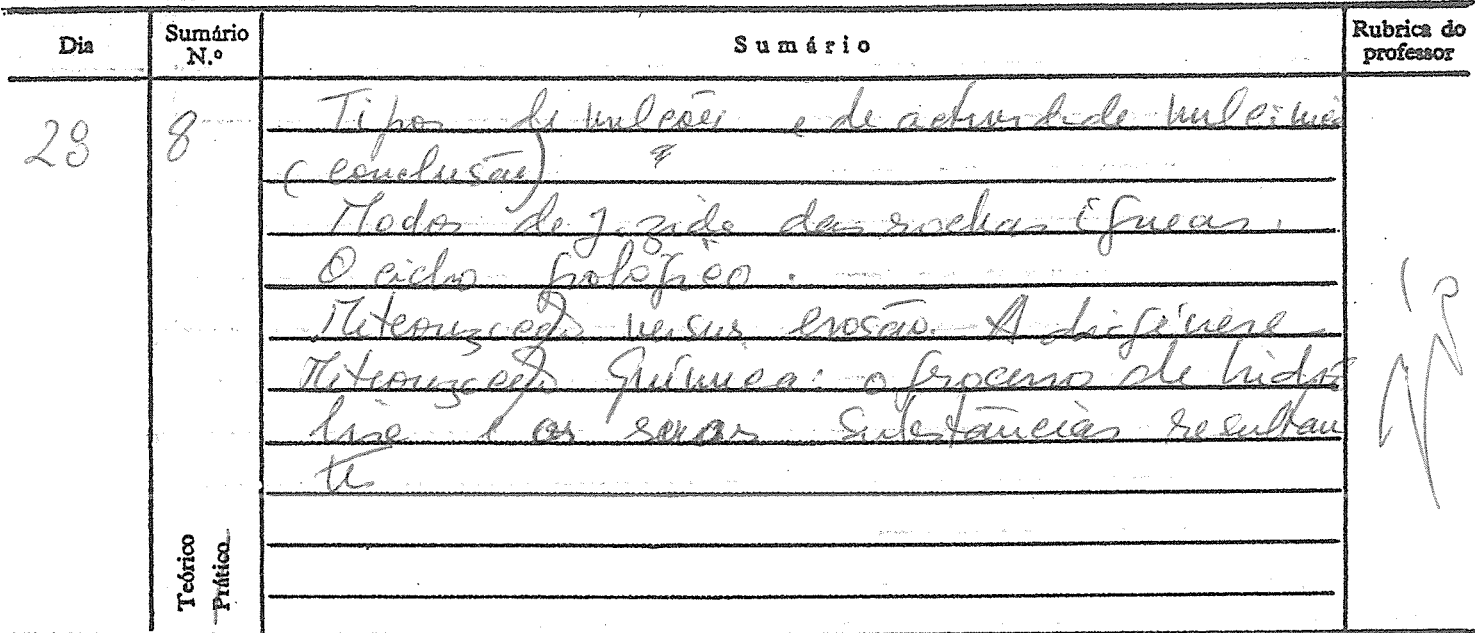 Dia Sumário N.º Sumário Rubrica do professor
23 8 Tipos de vulcões e de actividade vulcânica
(conclusão)
Modos de jazida das rochas ígneas.
O ciclo geológico.
Meteorização versus erosão. A diagénese
Meteorização Química: o processo de hidró
lise e as suas substâncias resultan
tes
Teórico
Prático